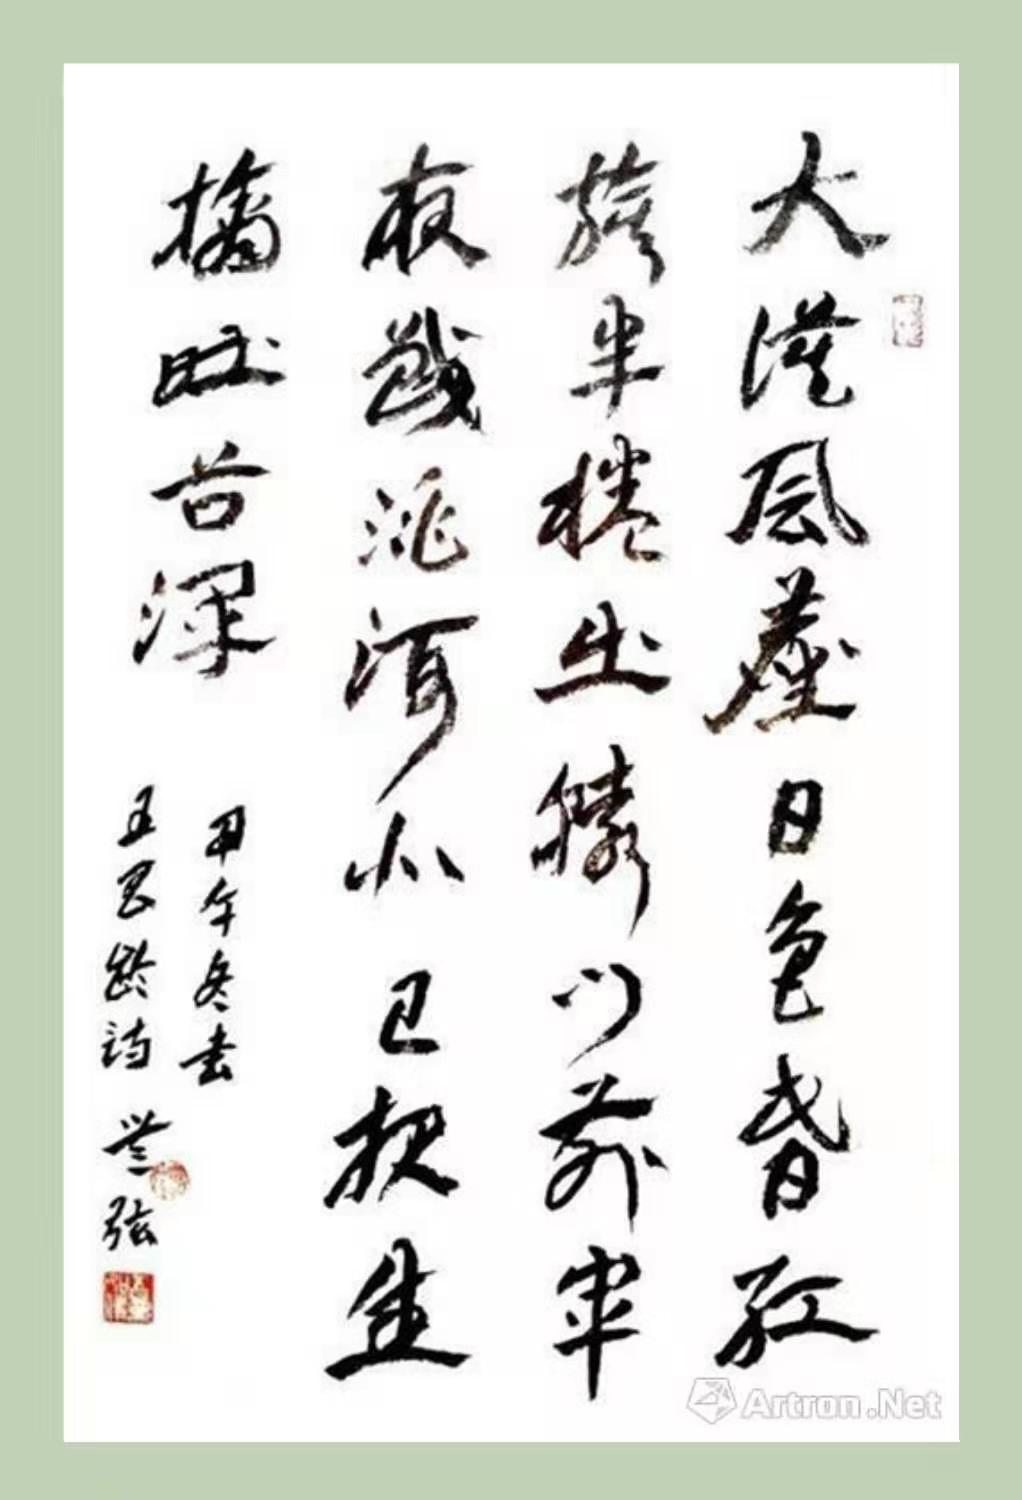 大漠风塵日色昏红
旗半捲出辕门前军
夜戰洮河北已报生
擒吐谷浑
甲午冬书
王昌龄诗 兰弦
Artron.Net